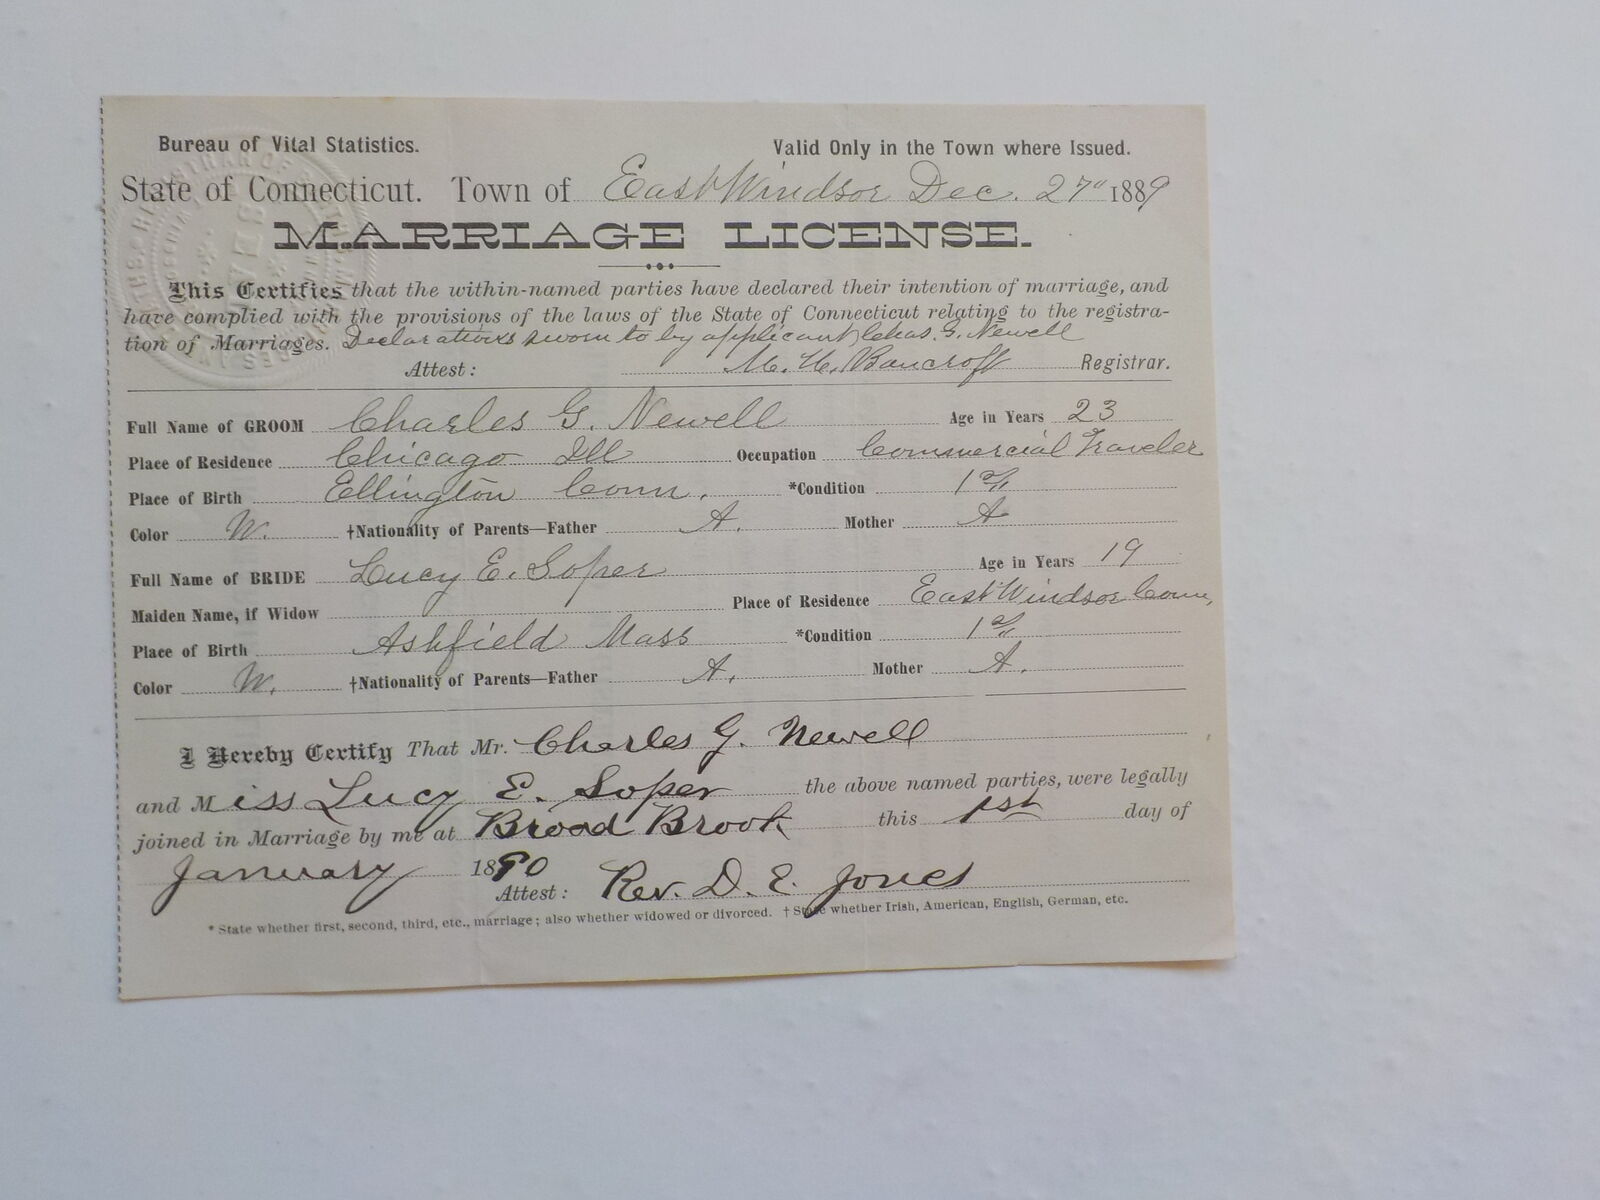 Bureau of Vital Statistics. Valid Only in the Town where Issued.
State of Connecticut. Town of East Windsor Dec. 27" 1889
MARRIAGE LICENSE.
This Certifies that the within-named parties have declared their intention of marriage, and
have complied with the provisions of the laws of the State of Connecticut relating to the registra-
tion of Marriages. Declarations sworn to by applicant Chas. G. Newell
Attest: M. H. Bancroft Registrar.
Full Name of GROOM Charles G. Newell Age in Years 23
Place of Residence Chicago Ill Occupation Commercial Traveler
Place of Birth Ellington Conn. *Condition 1st
Color W. †Nationality of Parents—Father A. Mother A
Full Name of BRIDE Lucy E. Soper Age in Years 19
Maiden Name, if Widow Place of Residence East Windsor Conn,
Place of Birth Ashfield Mass *Condition 1st
Color W. †Nationality of Parents—Father A. Mother A.
I Hereby Certify That Mr. Charles G. Newell
and Miss Lucy E. Soper the above named parties, were legally
joined in Marriage by me at Broad Brook this 1st day of
January 1890
Attest: Rev. D. E. Jones
* State whether first, second, third, etc., marriage; also whether widowed or divorced. † State whether Irish, American, English, German, etc.